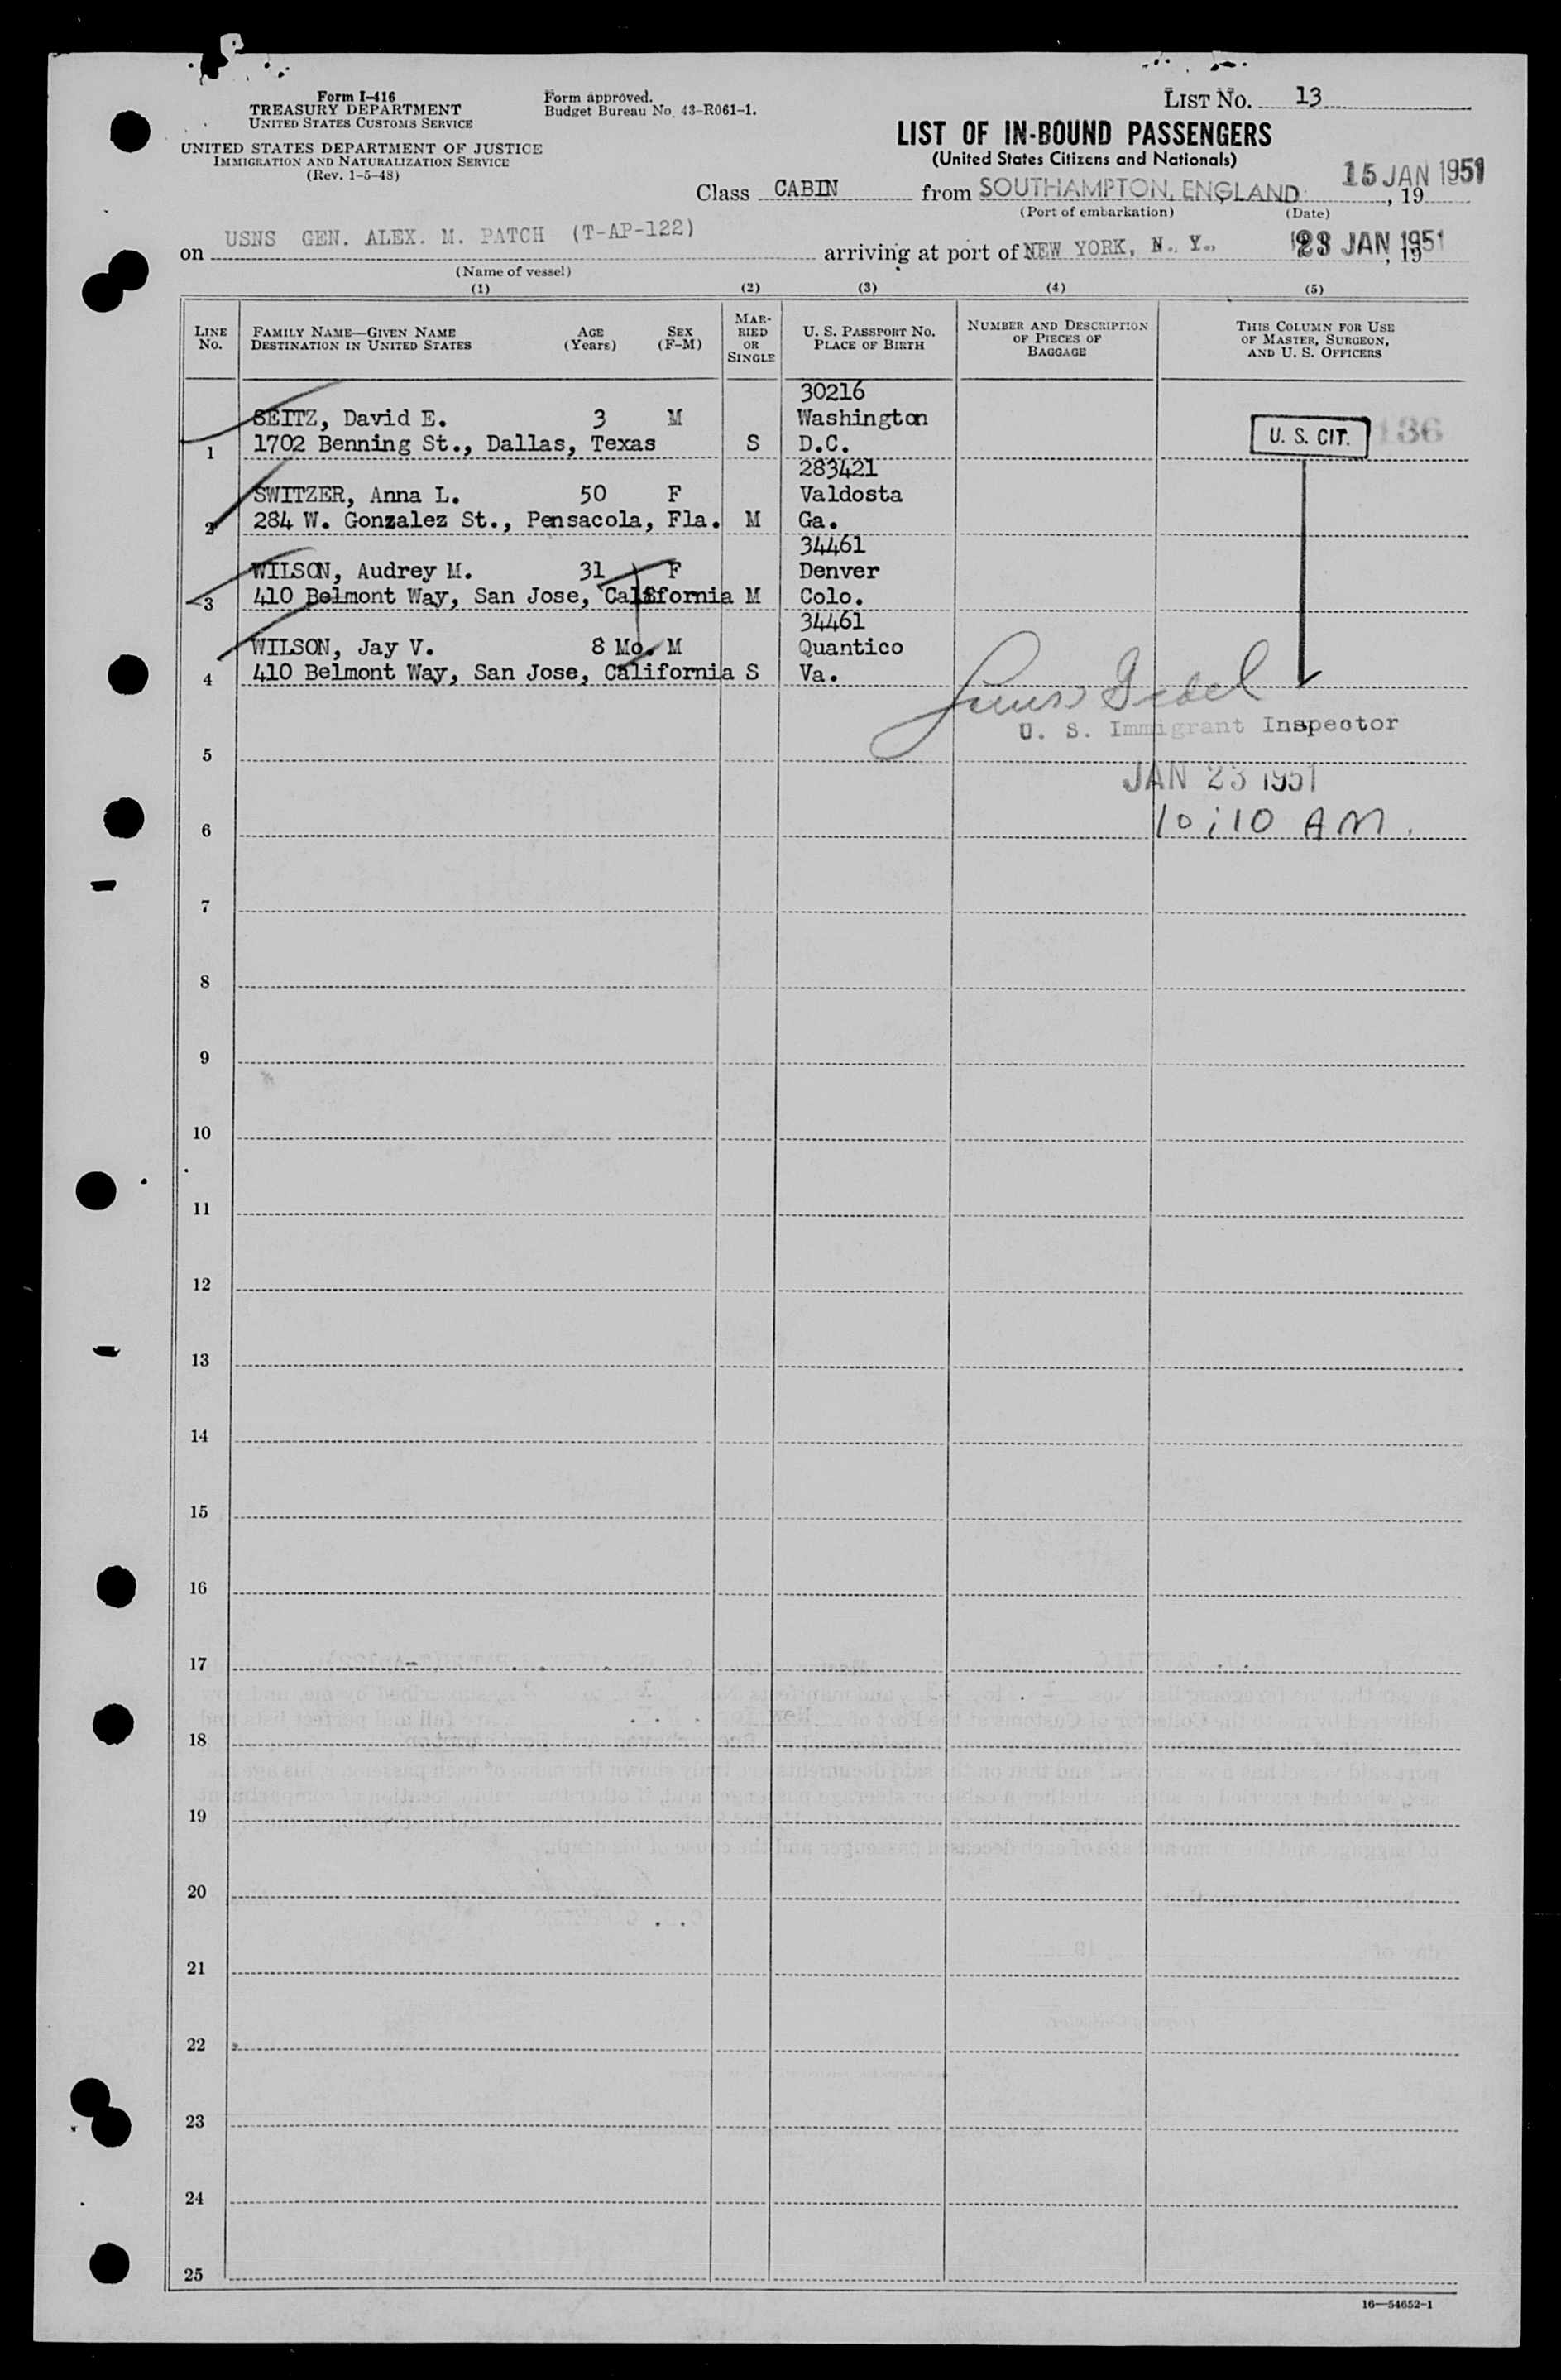 Form I-416
TREASURY DEPARTMENT
UNITED STATES CUSTOMS SERVICE
UNITED STATES DEPARTMENT OF JUSTICE
IMMIGRATION AND NATURALIZATION SERVICE
(Rev. 1-5-48)
Form approved.
Budget Bureau No. 43-R061-1.
LIST NO. 13
LIST OF IN-BOUND PASSENGERS
(United States Citizens and Nationals)
Class CABIN from SOUTHAMPTON, ENGLAND 15 JAN 1951, 19
(Port of embarkation) (Date)
on USNS GEN. ALEX. M. PATCH (T-AP-122) arriving at port of NEW YORK, N. Y., 23 JAN 1951, 19
(Name of vessel)
(1) (2) (3) (4) (5)
LINE No. FAMILY NAME—GIVEN NAME DESTINATION IN UNITED STATES AGE (Years) SEX (F-M) MARRIED OR SINGLE U. S. PASSPORT NO. PLACE OF BIRTH NUMBER AND DESCRIPTION OF PIECES OF BAGGAGE THIS COLUMN FOR USE OF MASTER, SURGEON, AND U. S. OFFICERS
30216
SEITZ, David E. 3 M Washington
1 1702 Benning St., Dallas, Texas S D.C. U. S. CIT. 136
283421
SWITZER, Anna L. 50 F Valdosta
2 284 W. Gonzalez St., Pensacola, Fla. M Ga.
34461
WILSON, Audrey M. 31 F Denver
3 410 Belmont Way, San Jose, California M Colo.
34461
WILSON, Jay V. 8 Mo. M Quantico
4 410 Belmont Way, San Jose, California S Va.
U. S. Immigrant Inspector
5
JAN 23 1951
6 10:10 AM.
7
8
9
10
11
12
13
14
15
16
17
18
19
20
21
22
23
24
25
16—54652-1